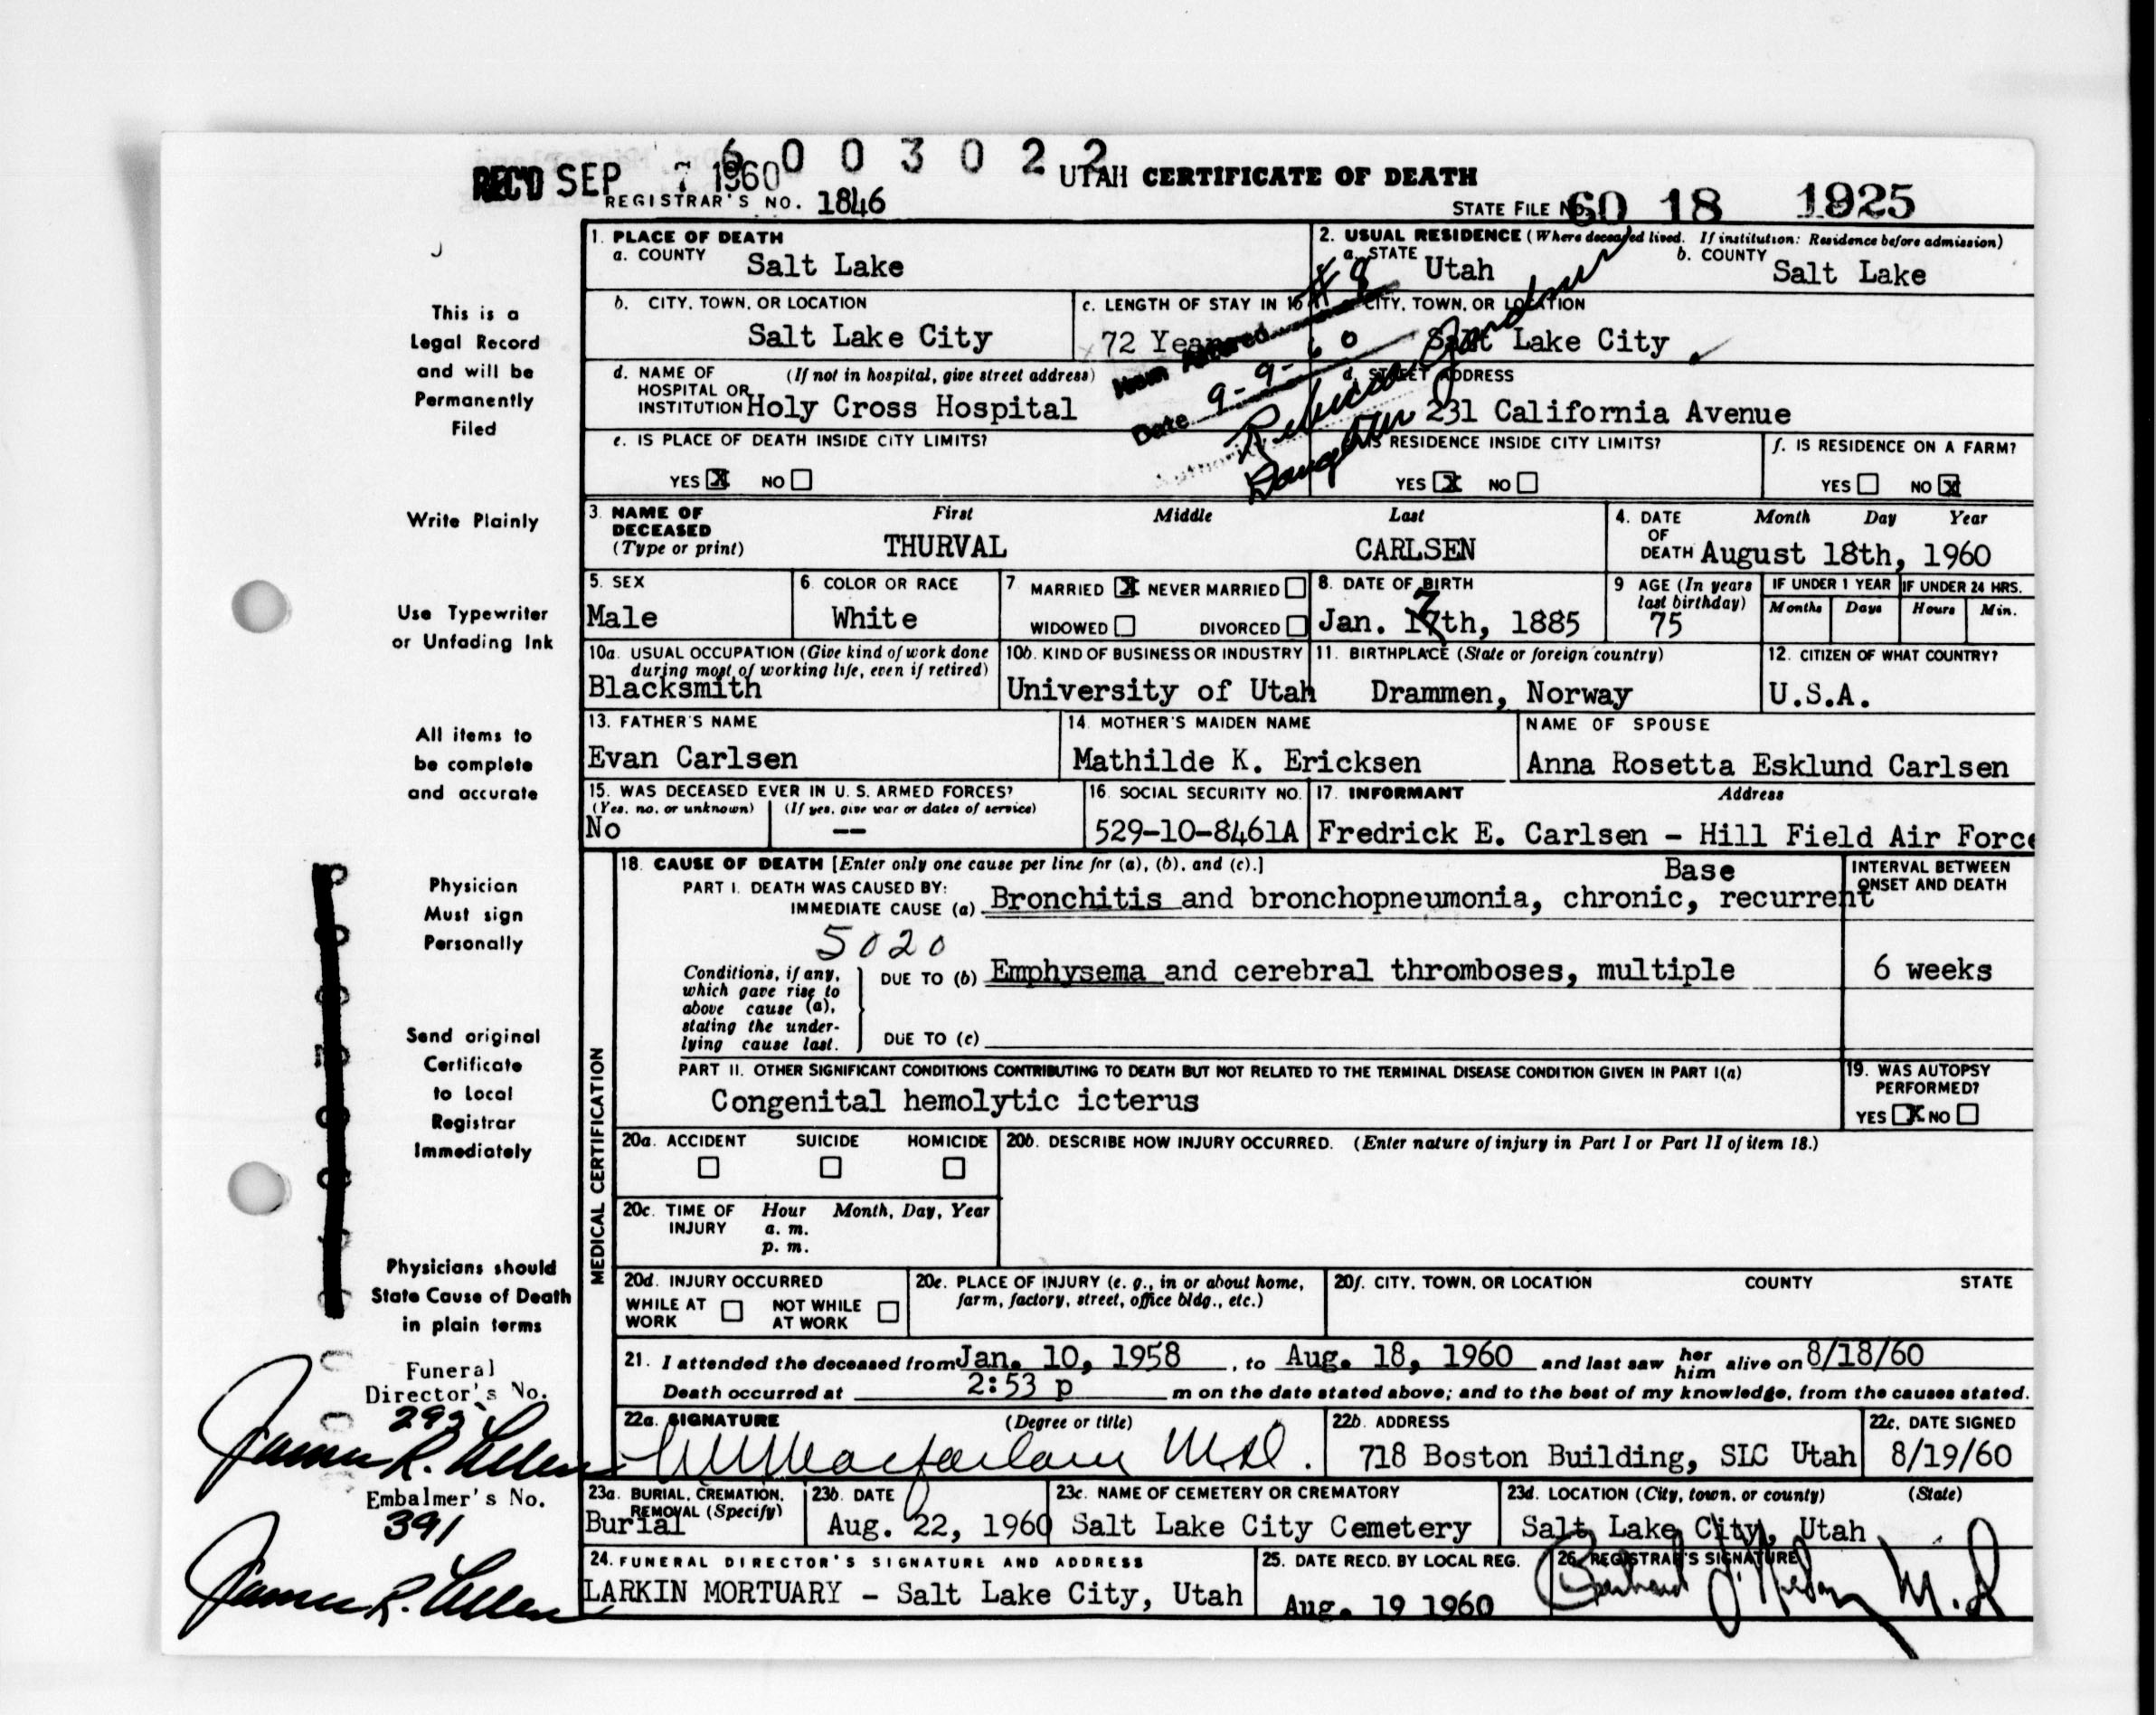 6003022
REC'D SEP 7 1960 UTAH CERTIFICATE OF DEATH
REGISTRAR'S NO. 1846 STATE FILE NO. 60 18 1925
This is a
Legal Record
and will be
Permanently
Filed
Write Plainly
Use Typewriter
or Unfading Ink
All items to
be complete
and accurate
Physician
Must sign
Personally
Send original
Certificate
to Local
Registrar
Immediately
Physicians should
State Cause of Death
in plain terms
Funeral
Director's No.
292
James R. Allen
Embalmer's No.
391
James R. Allen
1. PLACE OF DEATH
a. COUNTY Salt Lake
2. USUAL RESIDENCE (Where deceased lived. If institution: Residence before admission)
a. STATE Utah b. COUNTY Salt Lake
b. CITY, TOWN, OR LOCATION
Salt Lake City
c. LENGTH OF STAY IN 1b
72 Years
CITY, TOWN, OR LOCATION
Salt Lake City
Item Altered # 8
Date 9-9-60
Daughter
d. NAME OF HOSPITAL OR INSTITUTION (If not in hospital, give street address)
Holy Cross Hospital
d. STREET ADDRESS
231 California Avenue
e. IS PLACE OF DEATH INSIDE CITY LIMITS?
YES X NO
IS RESIDENCE INSIDE CITY LIMITS?
YES X NO
f. IS RESIDENCE ON A FARM?
YES NO X
3. NAME OF DECEASED (Type or print) First Middle Last
THURVAL CARLSEN
4. DATE OF DEATH Month Day Year
August 18th, 1960
5. SEX
Male
6. COLOR OR RACE
White
7. MARRIED X NEVER MARRIED
WIDOWED DIVORCED
8. DATE OF BIRTH
Jan. 17th, 1885
9 AGE (In years last birthday)
75
IF UNDER 1 YEAR IF UNDER 24 HRS.
Months Days Hours Min.
10a. USUAL OCCUPATION (Give kind of work done during most of working life, even if retired)
Blacksmith
10b. KIND OF BUSINESS OR INDUSTRY
University of Utah
11. BIRTHPLACE (State or foreign country)
Drammen, Norway
12. CITIZEN OF WHAT COUNTRY?
U.S.A.
13. FATHER'S NAME
Evan Carlsen
14. MOTHER'S MAIDEN NAME
Mathilde K. Ericksen
NAME OF SPOUSE
Anna Rosetta Esklund Carlsen
15. WAS DECEASED EVER IN U. S. ARMED FORCES?
(Yes, no, or unknown) (If yes, give war or dates of service)
No --
16. SOCIAL SECURITY NO.
529-10-8461A
17. INFORMANT Address
Fredrick E. Carlsen - Hill Field Air Force
Base
MEDICAL CERTIFICATION
18. CAUSE OF DEATH [Enter only one cause per line for (a), (b), and (c).]
INTERVAL BETWEEN ONSET AND DEATH
PART I. DEATH WAS CAUSED BY:
IMMEDIATE CAUSE (a) Bronchitis and bronchopneumonia, chronic, recurrent
5020
Conditions, if any, which gave rise to above cause (a), stating the underlying cause last.
DUE TO (b) Emphysema and cerebral thromboses, multiple 6 weeks
DUE TO (c)
PART II. OTHER SIGNIFICANT CONDITIONS CONTRIBUTING TO DEATH BUT NOT RELATED TO THE TERMINAL DISEASE CONDITION GIVEN IN PART I(a)
Congenital hemolytic icterus
19. WAS AUTOPSY PERFORMED?
YES X NO
20a. ACCIDENT SUICIDE HOMICIDE
20b. DESCRIBE HOW INJURY OCCURRED. (Enter nature of injury in Part I or Part II of item 18.)
20c. TIME OF INJURY Hour Month, Day, Year
a. m.
p. m.
20d. INJURY OCCURRED
WHILE AT WORK NOT WHILE AT WORK
20e. PLACE OF INJURY (e. g., in or about home, farm, factory, street, office bldg., etc.)
20f. CITY, TOWN, OR LOCATION COUNTY STATE
21. I attended the deceased from Jan. 10, 1958, to Aug. 18, 1960 and last saw her him alive on 8/18/60
Death occurred at 2:53 p m on the date stated above; and to the best of my knowledge, from the causes stated.
22a. SIGNATURE (Degree or title)
Macfarlane M.D.
22b. ADDRESS
718 Boston Building, SLC Utah
22c. DATE SIGNED
8/19/60
23a. BURIAL, CREMATION, REMOVAL (Specify)
Burial
23b. DATE
Aug. 22, 1960
23c. NAME OF CEMETERY OR CREMATORY
Salt Lake City Cemetery
23d. LOCATION (City, town, or county) (State)
Salt Lake City, Utah
24. FUNERAL DIRECTOR'S SIGNATURE AND ADDRESS
LARKIN MORTUARY - Salt Lake City, Utah
25. DATE RECD. BY LOCAL REG.
Aug. 19 1960
26. REGISTRAR'S SIGNATURE
M.D.